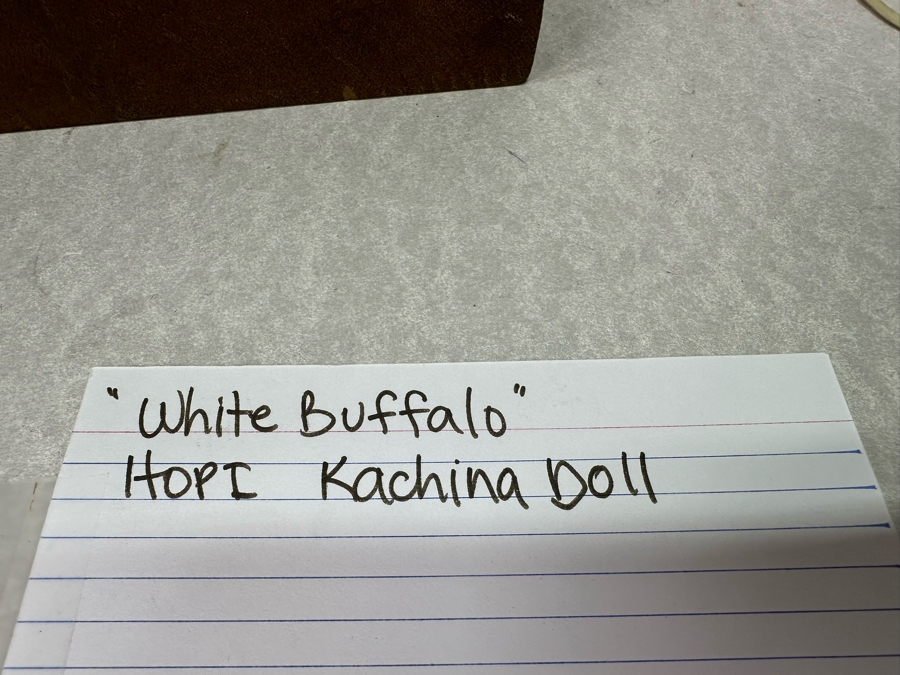 "White Buffalo"
HOPI Kachina Doll